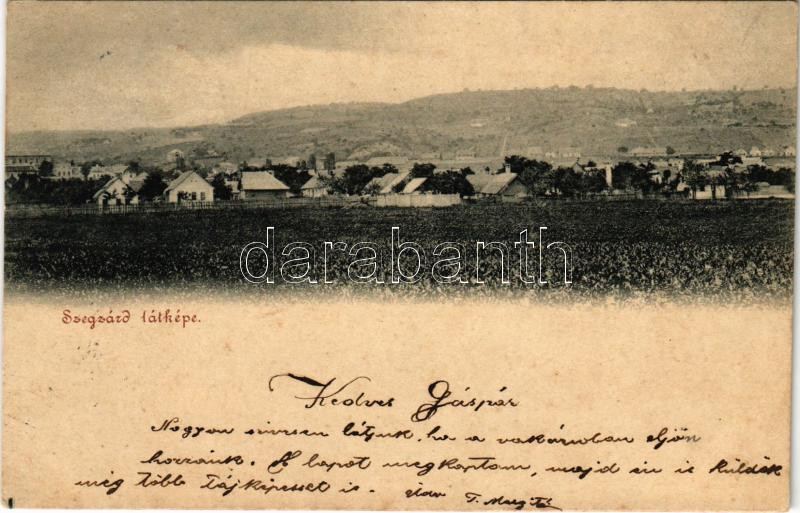 darabanth
Szegzárd látképe.
Kedves Gáspár
Nagyon szivesen látjuk, ha a vakázioban eljön
hozzánk. A lapot megkaptam, majd én is küldök
még több tájképeset is. üdv